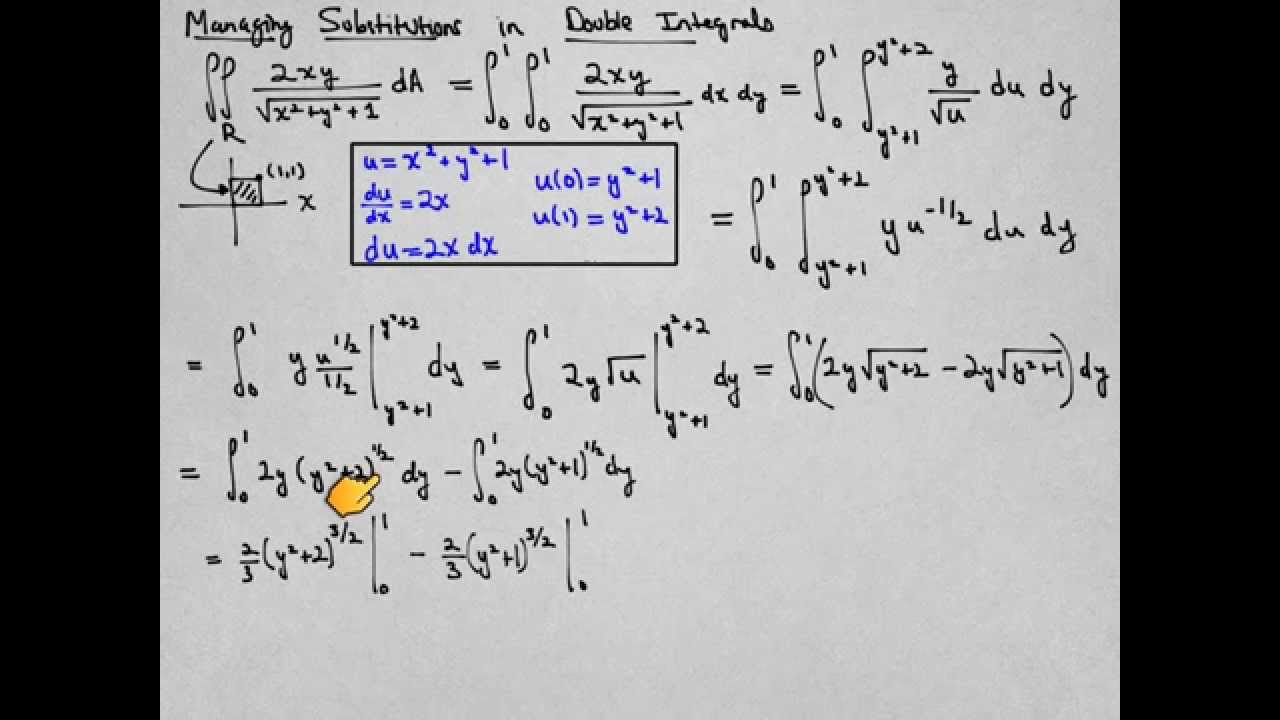 Managing Substitutions in Double Integrals
∬ 2xy/√(x²+y²+1) dA = ∫₀¹ ∫₀¹ 2xy/√(x²+y²+1) dx dy = ∫₀¹ ∫_{y²+1}^{y²+2} y/√u du dy
R
(1,1)
x
u = x² + y² + 1
du/dx = 2x
du = 2x dx
u(0) = y² + 1
u(1) = y² + 2
= ∫₀¹ ∫_{y²+1}^{y²+2} y u^{-1/2} du dy
= ∫₀¹ y u^{1/2}/1/2 |_{y²+1}^{y²+2} dy = ∫₀¹ 2y√u |_{y²+1}^{y²+2} dy = ∫₀¹ (2y√(y²+2) − 2y√(y²+1)) dy
= ∫₀¹ 2y (y²+2)^{1/2} dy − ∫₀¹ 2y (y²+1)^{1/2} dy
= 2/3 (y²+2)^{3/2} |₀¹ − 2/3 (y²+1)^{3/2} |₀¹